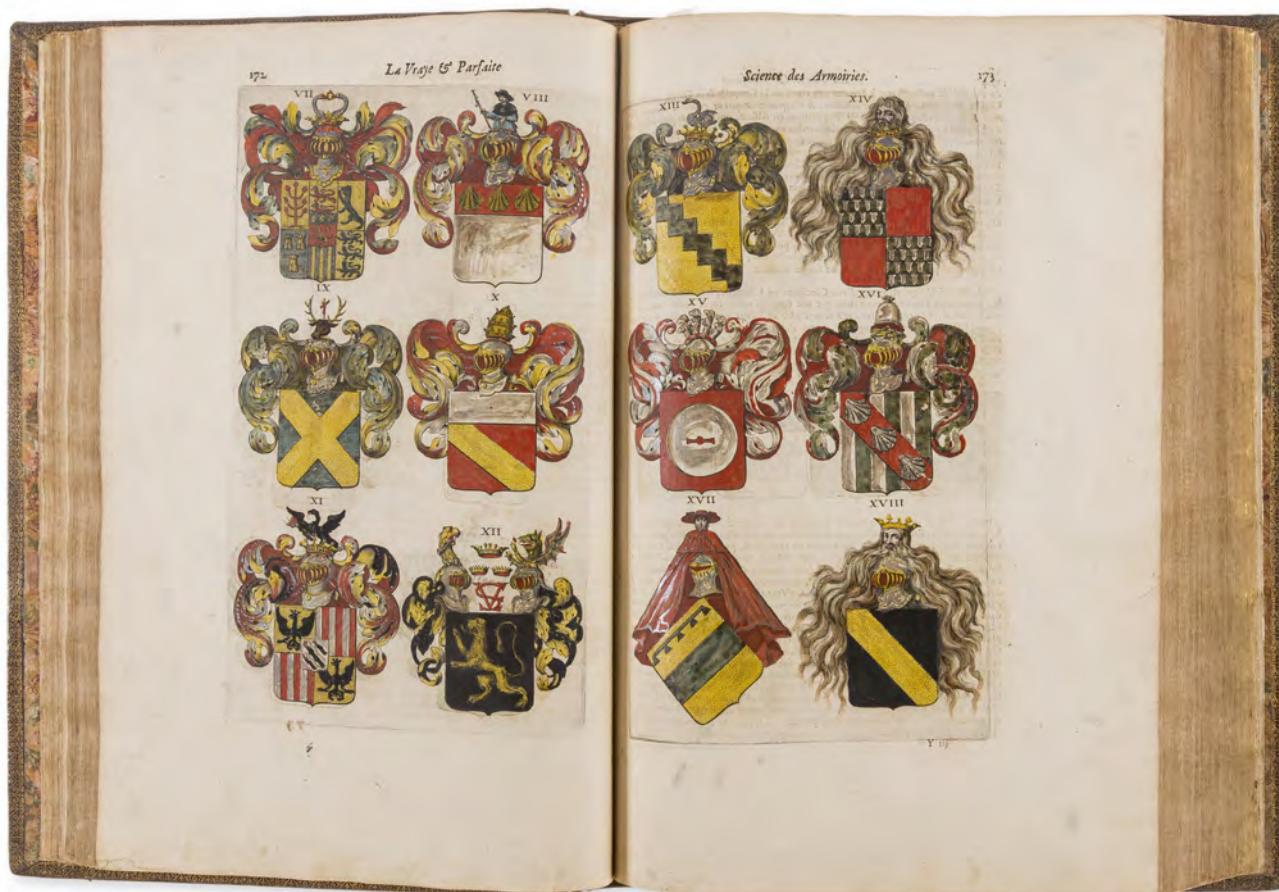 172
La Vraye & Parfaite
VII
VIII
IX
X
XI
XII
Science des Armoiries.
173
XIII
XIV
XV
XVI
XVII
XVIII
Y iij